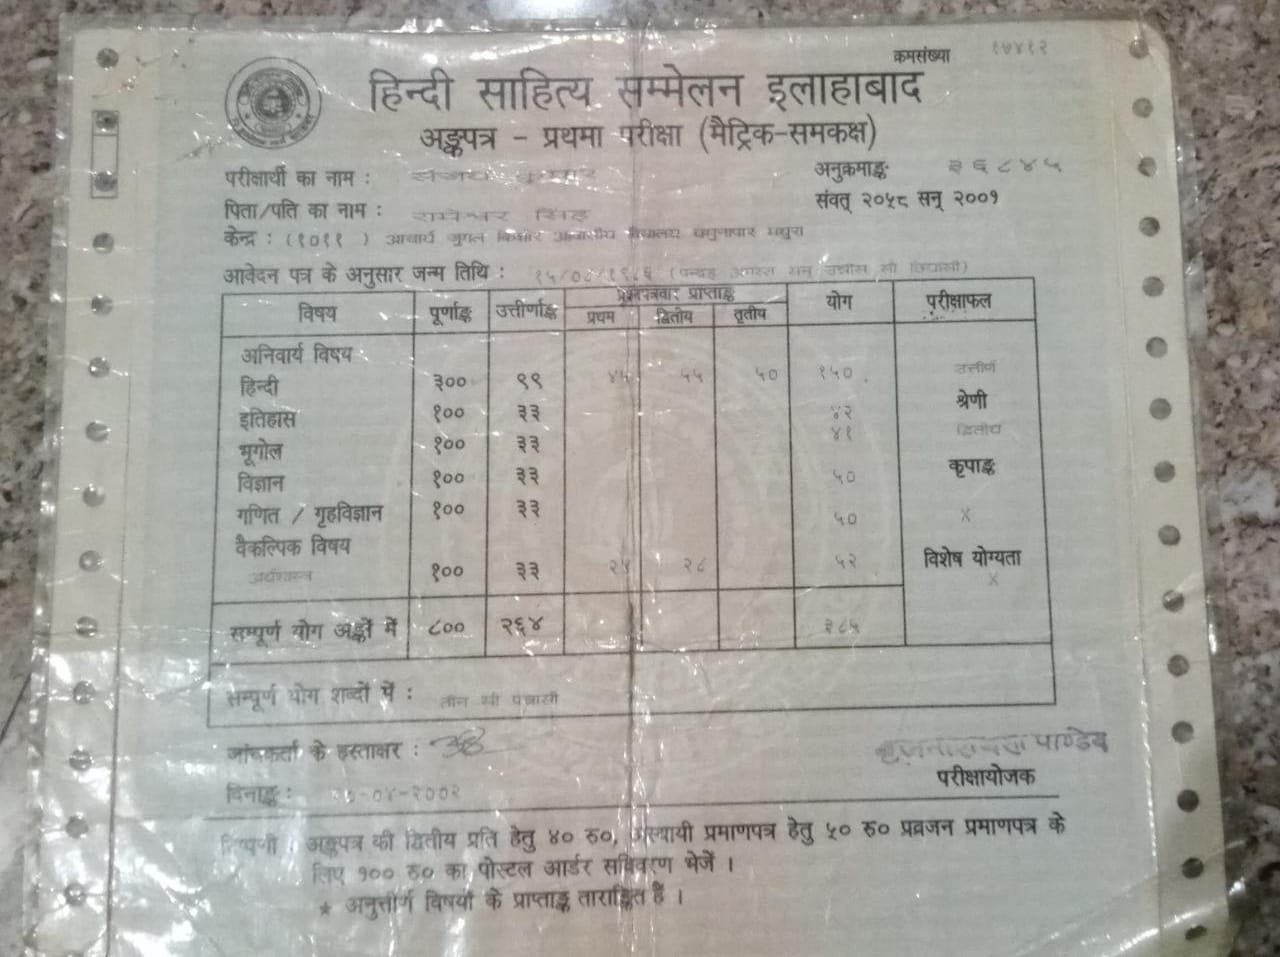 क्रमसंख्या १७४१२
हिन्दी साहित्य सम्मेलन इलाहाबाद
अङ्कपत्र - प्रथमा परीक्षा (मैट्रिक-समकक्ष)
परीक्षार्थी का नाम : कुमार अनुक्रमाङ्क ३६८४५
पिता/पति का नाम : रामेश्वर सिंह संवत् २०५८ सन् २००१
केन्द्र : (१०११ ) आचार्य जुगल किशोर आवासीय विद्यालय यमुनापार मथुरा
आवेदन पत्र के अनुसार जन्म तिथि : १५/०८/१९८६ (पन्द्रह अगस्त सन उन्नीस सौ छियासी)
विषय पूर्णाङ्क उत्तीर्णाङ्क प्रश्नपत्रवार प्राप्ताङ्क योग परीक्षाफल
प्रथम द्वितीय तृतीय
अनिवार्य विषय
हिन्दी ३०० ९९ ४५ ५५ ५० १५० उत्तीर्ण
इतिहास १०० ३३ ४२ श्रेणी
भूगोल १०० ३३ ४१ द्वितीय
विज्ञान १०० ३३ ५० कृपाङ्क
गणित / गृहविज्ञान १०० ३३ ५० X
वैकल्पिक विषय विशेष योग्यता
अर्थशास्त्र १०० ३३ २८ ५२ X
सम्पूर्ण योग अङ्कों में ८०० २६४ ३८५
सम्पूर्ण योग शब्दों में : तीन सौ पचासी
जांचकर्ता के हस्ताक्षर : पाण्डेय
परीक्षायोजक
दिनाङ्क :
टिप्पणी : अङ्कपत्र की द्वितीय प्रति हेतु ४० रु०, अस्थायी प्रमाणपत्र हेतु ५० रु० प्रव्रजन प्रमाणपत्र के
लिए १०० रु० का पोस्टल आर्डर सविवरण भेजें ।
★ अनुत्तीर्ण विषयों के प्राप्ताङ्क ताराङ्कित हैं ।